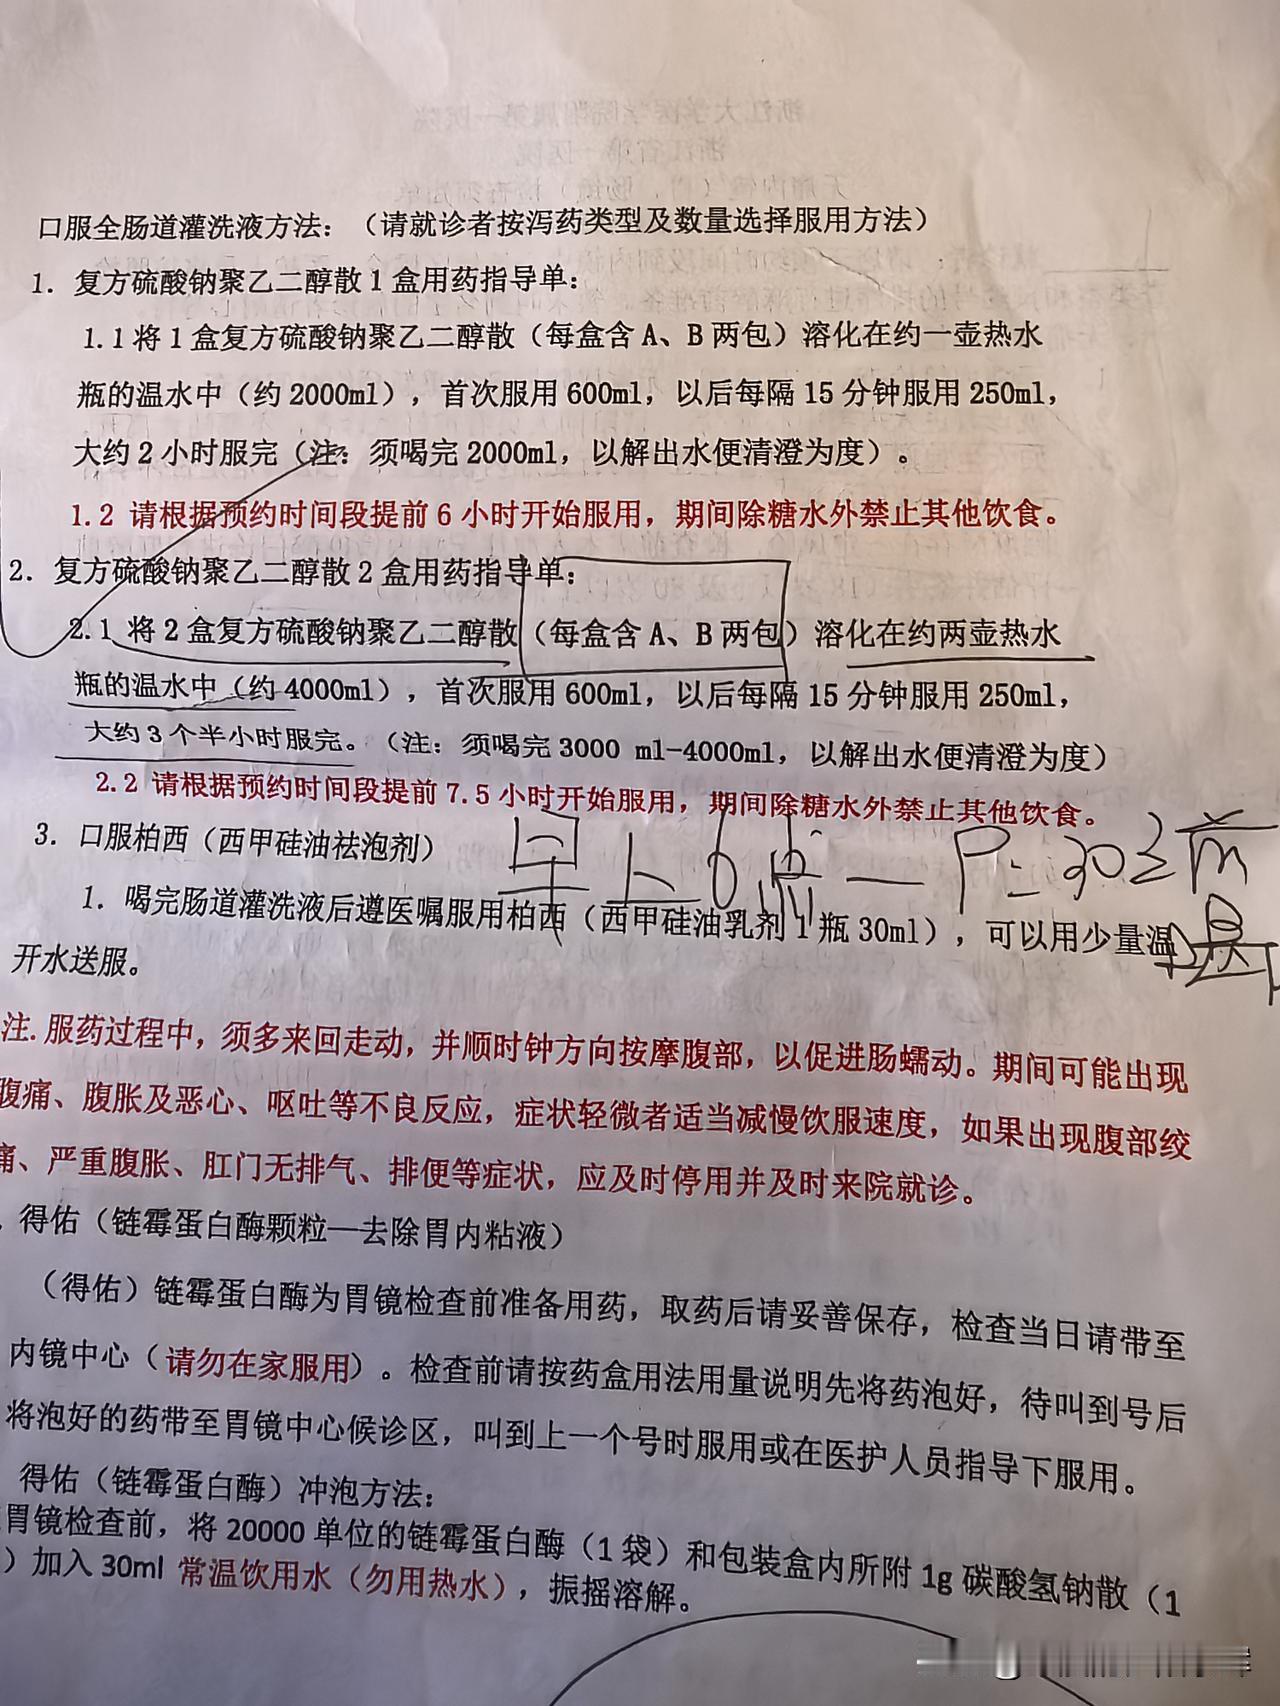 口服全肠道灌洗液方法：（请就诊者按泻药类型及数量选择服用方法）
1. 复方硫酸钠聚乙二醇散1盒用药指导单：
1.1 将1盒复方硫酸钠聚乙二醇散（每盒含A、B两包）溶化在约一壶热水
瓶的温水中（约2000ml），首次服用600ml，以后每隔15分钟服用250ml，
大约2小时服完（注：须喝完2000ml，以解出水便清澄为度）。
1.2 请根据预约时间段提前6小时开始服用，期间除糖水外禁止其他饮食。
2. 复方硫酸钠聚乙二醇散2盒用药指导单：
2.1 将2盒复方硫酸钠聚乙二醇散（每盒含A、B两包）溶化在约两壶热水
瓶的温水中（约4000ml），首次服用600ml，以后每隔15分钟服用250ml，
大约3个半小时服完。（注：须喝完3000 ml-4000ml，以解出水便清澄为度）
2.2 请根据预约时间段提前7.5小时开始服用，期间除糖水外禁止其他饮食。
3. 口服柏西（西甲硅油祛泡剂）
早上6点
1. 喝完肠道灌洗液后遵医嘱服用柏西（西甲硅油乳剂1瓶30ml），可以用少量温
开水送服。
注.服药过程中，须多来回走动，并顺时钟方向按摩腹部，以促进肠蠕动。期间可能出现
腹痛、腹胀及恶心、呕吐等不良反应，症状轻微者适当减慢饮服速度，如果出现腹部绞
痛、严重腹胀、肛门无排气、排便等症状，应及时停用并及时来院就诊。
得佑（链霉蛋白酶颗粒—去除胃内粘液）
（得佑）链霉蛋白酶为胃镜检查前准备用药，取药后请妥善保存，检查当日请带至
内镜中心（请勿在家服用）。检查前请按药盒用法用量说明先将药泡好，待叫到号后
将泡好的药带至胃镜中心候诊区，叫到上一个号时服用或在医护人员指导下服用。
得佑（链霉蛋白酶）冲泡方法：
胃镜检查前，将20000单位的链霉蛋白酶（1袋）和包装盒内所附1g碳酸氢钠散（1
）加入30ml 常温饮用水（勿用热水），振摇溶解。